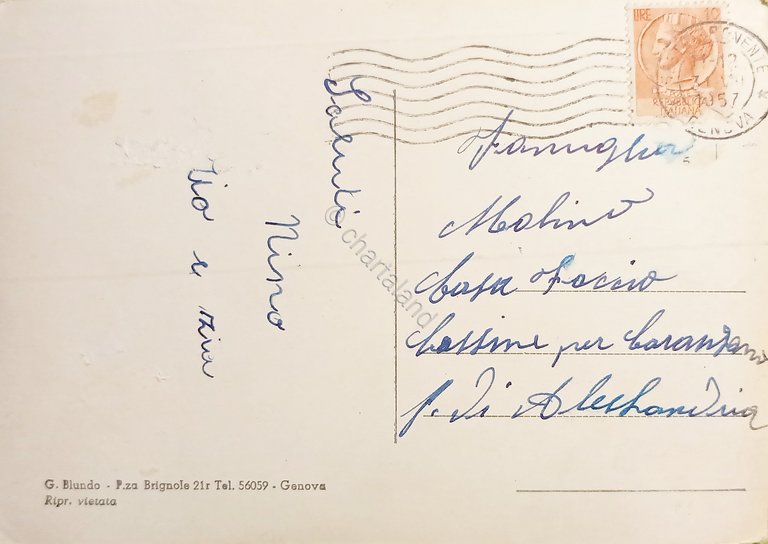 LIRE 10
REPUBBLICA
ITALIANA
PONENTE
1957
GENOVA
Saluti
Nino
Zio e zia
Famiglia
Molino
Casa Foccio
Cassine per Caranzano
p. di Alessandria
© chartaland
G. Blundo - P.za Brignole 21r Tel. 56059 - Genova
Ripr. vietata